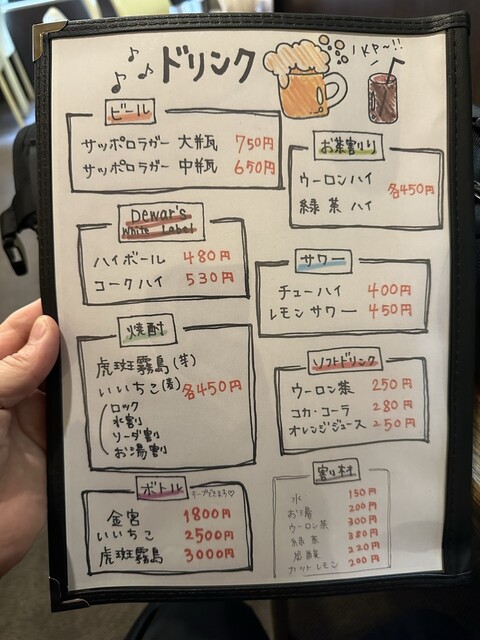 ドリンク
KP~!!
ビール
サッポロラガー 大瓶 750円
サッポロラガー 中瓶 650円
お茶割り
ウーロンハイ
緑茶ハイ
各450円
Dewar's
White Label
ハイボール 480円
コークハイ 530円
サワー
チューハイ 400円
レモンサワー 450円
焼酎
虎斑霧島(芋)
いいちこ(麦)
各450円
ロック
水割り
ソーダ割り
お湯割り
ソフトドリンク
ウーロン茶 250円
コカ・コーラ 280円
オレンジジュース 250円
ボトル
金宮 1800円
いいちこ 2500円
虎斑霧島 3000円
割り材
水 150円
お湯 200円
ウーロン茶 300円
緑茶 380円
炭酸 220円
カットレモン 200円